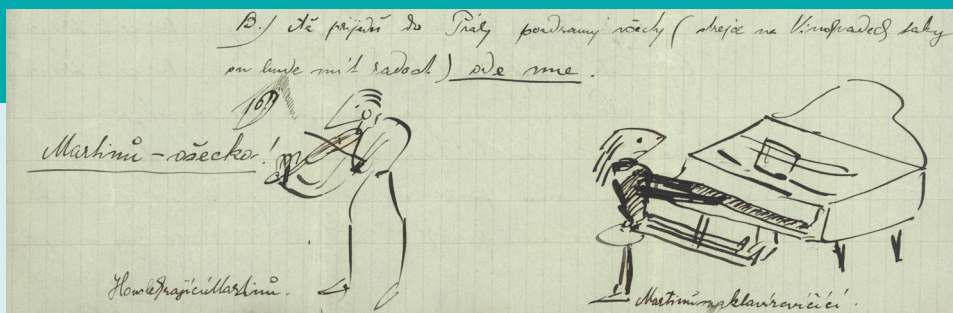 B.) Až přijedeš do Prahy pozdravuj všecky (strejce na Vinohradech taky
on bude mít radost) ode mne.
Martinů – všecko!
Houslehrající Martinů.
Martinů na klavír cvičící.